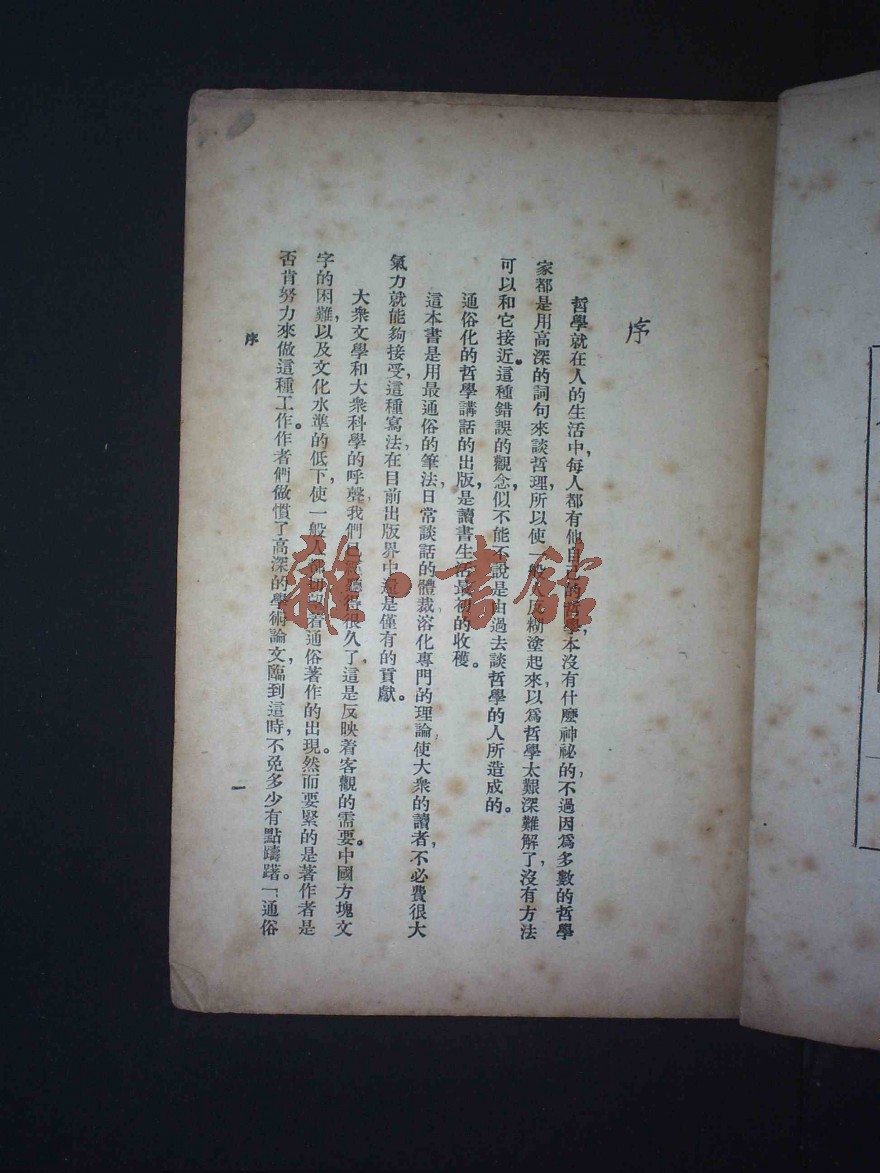 序
哲學就在人的生活中，每人都有他自己的哲學，本沒有什麼神祕的，不過因爲多數的哲學
家都是用高深的詞句來談哲理，所以使一般人反糊塗起來，以爲哲學太艱深難解了，沒有方法
可以和它接近。這種錯誤的觀念似不能不說是由過去談哲學的人所造成的。
通俗化的哲學講話的出版，是讀書生活最初的收穫。
這本書是用最通俗的筆法，日常談話的體裁，溶化專門的理論，使大衆的讀者，不必費很大
氣力就能夠接受，這種寫法，在目前出版界中還是僅有的貢獻。
大衆文學和大衆科學的呼聲，我們已經聽得很久了，這是反映着客觀的需要。中國方塊文
字的困難，以及文化水準的低下，使一般人都切望着通俗著作的出現。然而要緊的是著作者是
否肯努力來做這種工作。作者們做慣了高深的學術論文，臨到這時，不免多少有點躊躇。「通俗
序
一
雜·書館